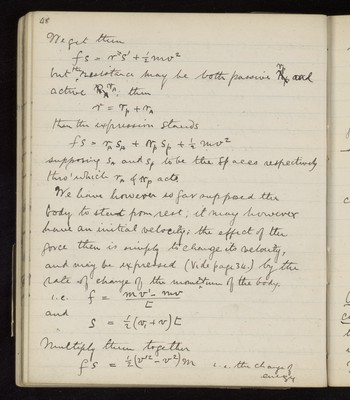 48
We get then
fs = r's' + ½mv²
but the resistance may be both passive rp and
active rA. then
r = rp + rA
then the expression stands
fs = rA sA + rp sp + ½ mv²
supposing sA and sp to be the spaces respectively
thro' which rA & rp acts.
We have however so far supposed the
body to start from rest. it may however
have an initial velocity; the effect of the
force then is simply to change its velocity,
and may be expressed (Vide page 34.) by the
rate of change of the momentum of the body.
i.e. f = mv' - mv / t
and
s = ½(v, + v)t
Multiply them together
fs = ½(v'² - v²)m i.e. the change of
energy